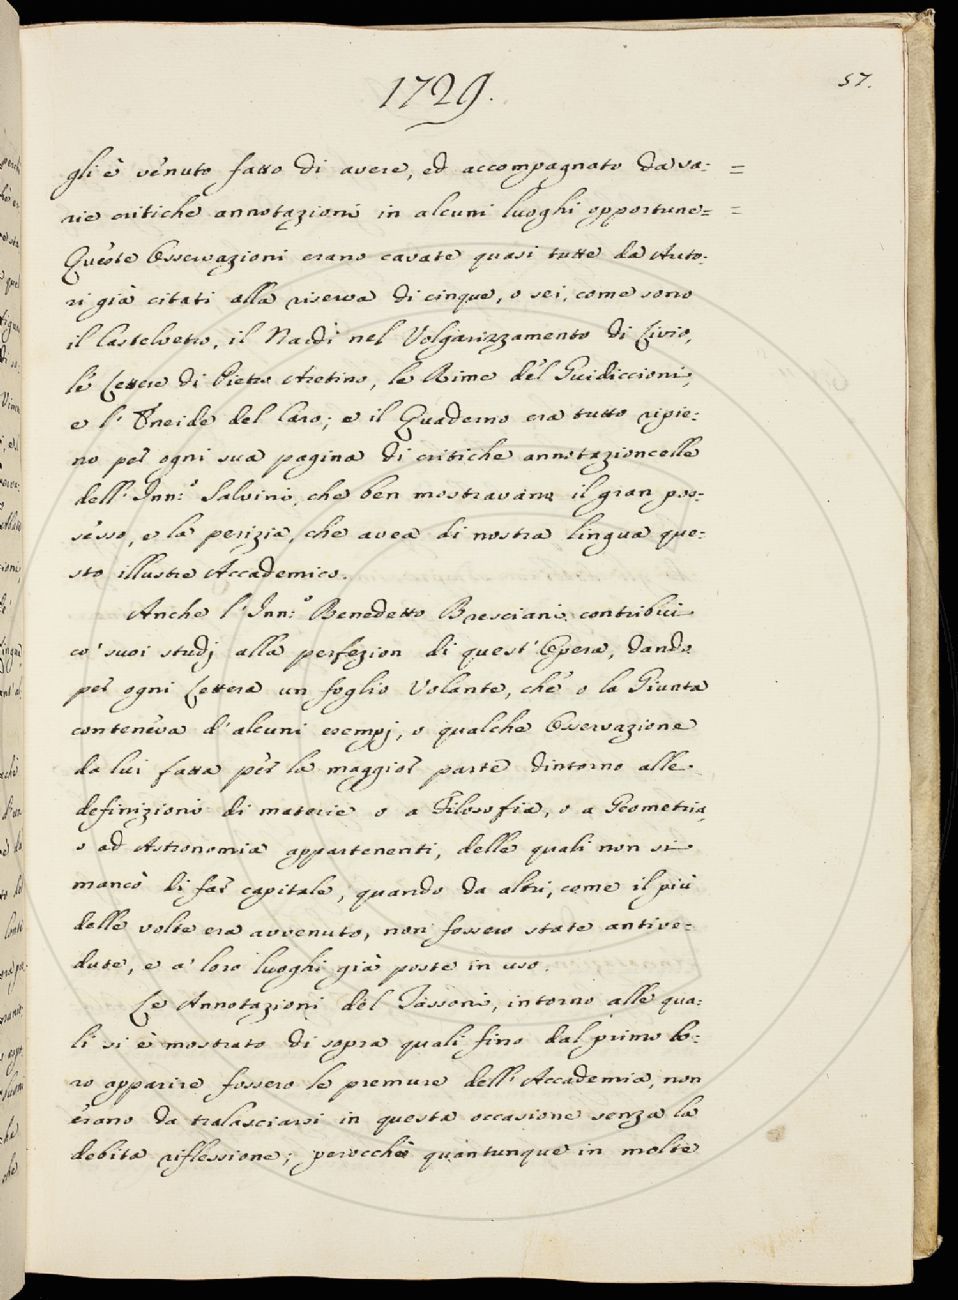 1729.
57.
gli è venuto fatto di avere, ed accompagnato da va: =
rie critiche annotazioni in alcuni luoghi opportune= =
Queste Osservazioni erano cavate quasi tutte da Auto:
ri già citati alla riserva di cinque, o sei, come sono
il Castelvetro, il Nardi nel Volgarizzamento di Livio,
le Lettere di Pietro Aretino, le Rime del Guidiccioni,
e l' Eneide del Caro; e il Quaderno era tutto ripie:
no per ogni sua pagina di critiche annotazioncelle
dell' Inn:º Salvini, che ben mostravano il gran pos:
sesso, e la perizia, che avea di nostra lingua que:
sto illustre Accademico.
Anche l' Inn:º Benedetto Bresciani contribuì
co' suoi studj alla perfezion di quest' Opera, dando
per ogni Lettera un foglio Volante, che o la Giunta
conteneva d' alcuni esempj, o qualche Osservazione
da lui fatta per la maggior parte dintorno alle
definizioni di materie o a Filosofia, o a Geometria,
o ad Astronomia appartenenti, delle quali non si
mancò di far capitale, quando da altri, come il più
delle volte era avvenuto, non fossero state antive:
dute, e a' loro luoghi già poste in uso.
Le Annotazioni del Tassoni, intorno alle qua:
li si è mostrato di sopra quali fino dal primo lo:
ro apparire fossero le premure dell' Accademia, non
erano da tralasciarsi in questa occasione senza la
debita riflessione; perocchè quantunque in molte